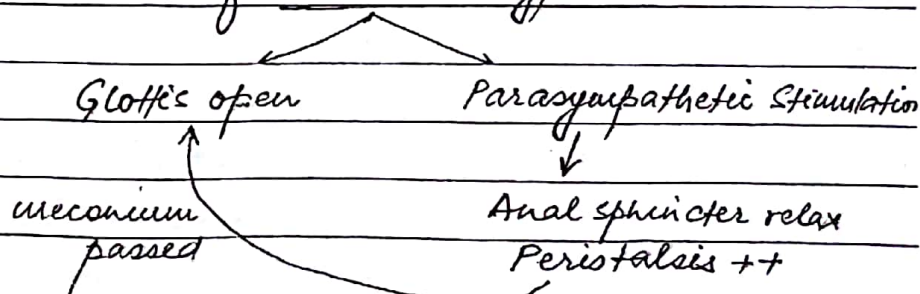 Glottis open Parasympathetic Stimulation
meconium Anal sphincter relax
passed Peristalsis ++